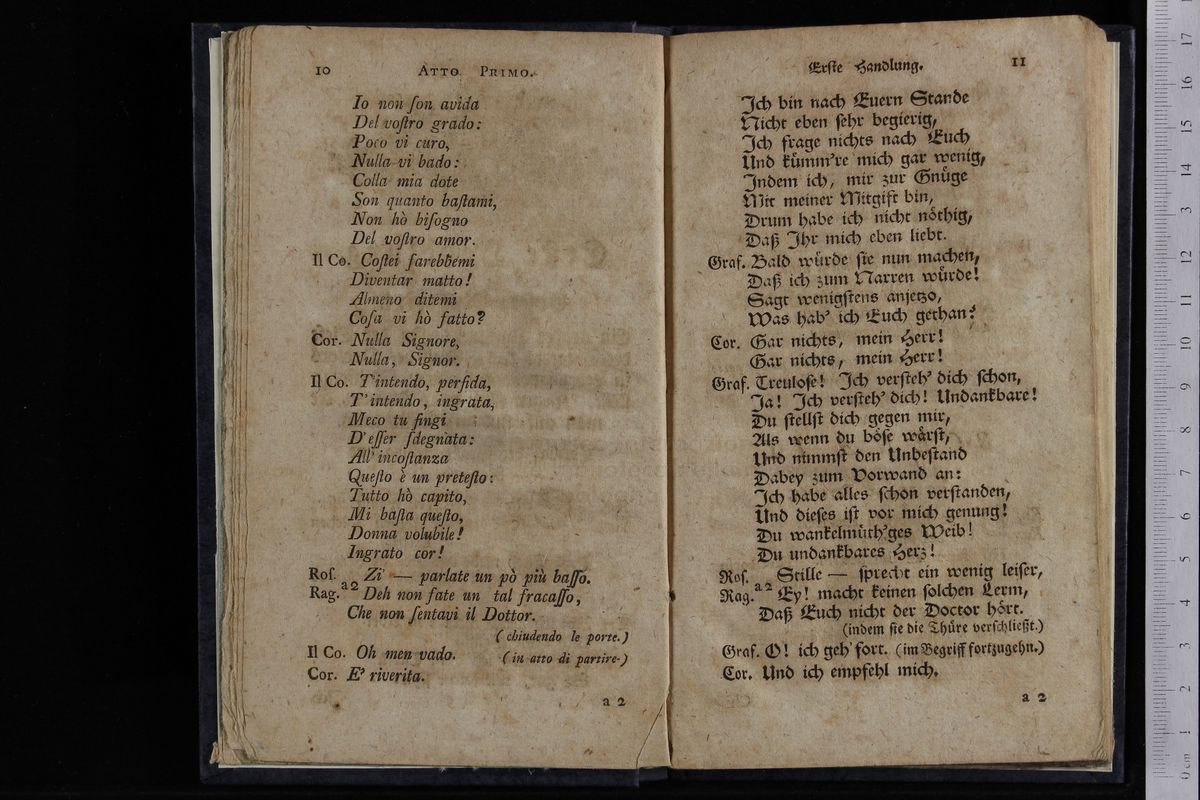 10 ATTO PRIMO.
Io non ſon avida
Del voſtro grado:
Poco vi curo,
Nulla vi bado:
Colla mia dote
Son quanto baſtami,
Non hò biſogno
Del voſtro amor.
Il Co. Coſtei farebbemi
Diventar matto!
Almeno ditemi
Coſa vi hò fatto?
Cor. Nulla Signore,
Nulla, Signor.
Il Co. T'intendo, perfida,
T'intendo, ingrata,
Meco tu fingi
D'eſſer ſdegnata:
All'incoſtanza
Queſto è un preteſto:
Tutto hò capito,
Mi baſta queſto,
Donna volubile!
Ingrato cor!
Roſ. Zi' — parlate un pò più baſſo.
a 2
Rag. Deh non fate un tal fracaſſo,
Che non ſentavi il Dottor.
(chiudendo le porte.)
Il Co. Oh men vado. (in atto di partire-)
Cor. E' riverita.
a 2
Erſte Handlung. 11
Ich bin nach Euern Stande
Nicht eben ſehr begierig,
Ich frage nichts nach Euch
Und kümm're mich gar wenig,
Indem ich, mir zur Gnüge
Mit meiner Mitgift bin,
Drum habe ich nicht nöthig,
Daß Ihr mich eben liebt.
Graf. Bald würde ſie nun machen,
Daß ich zum Narren würde!
Sagt wenigſtens anjetzo,
Was hab' ich Euch gethan?
Cor. Gar nichts, mein Herr!
Gar nichts, mein Herr!
Graf. Treuloſe! Ich verſteh' dich ſchon,
Ja! Ich verſteh' dich! Undankbare!
Du ſtellſt dich gegen mir,
Als wenn du böſe wärſt,
Und nimmſt den Unbeſtand
Dabey zum Vorwand an:
Ich habe alles ſchon verſtanden,
Und dieſes iſt vor mich genung!
Du wankelmüth'ges Weib!
Du undankbares Herz!
Roſ. Stille — ſprecht ein wenig leiſer,
a 2
Rag. Ey! macht keinen ſolchen Lerm,
Daß Euch nicht der Doctor hört.
(indem ſie die Thüre verſchließt.)
Graf. O! ich geh' fort. (im Begriff fortzugehn.)
Cor. Und ich empfehl mich.
a 2
0 cm 1 2 3 4 5 6 7 8 9 10 11 12 13 14 15 16 17